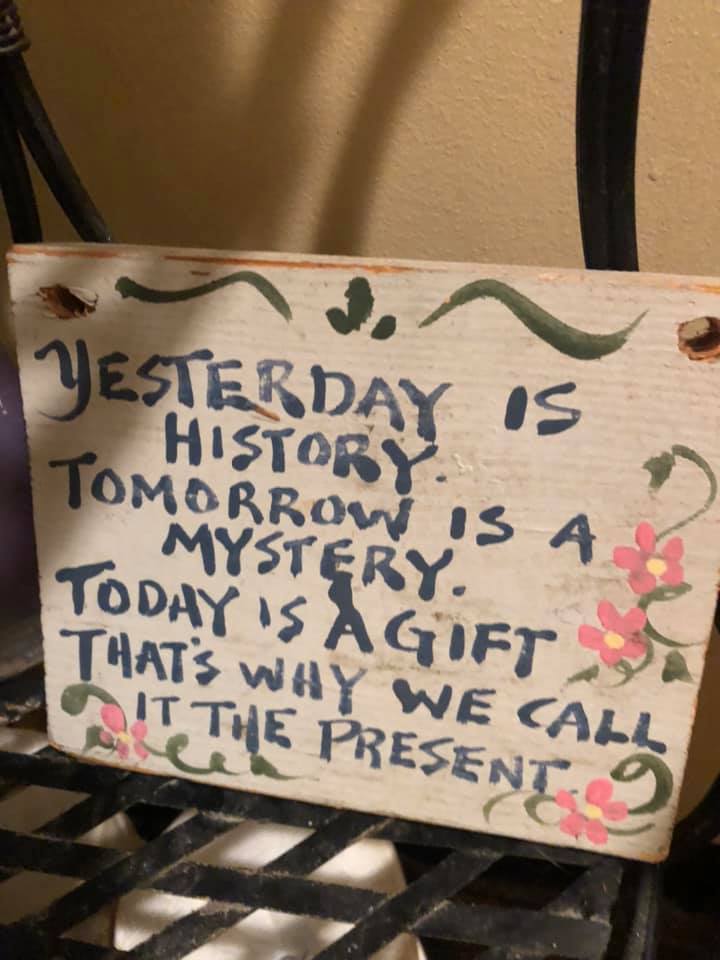 YESTERDAY IS
HISTORY.
TOMORROW IS A
MYSTERY.
TODAY IS A GIFT
THAT'S WHY WE CALL
IT THE PRESENT.